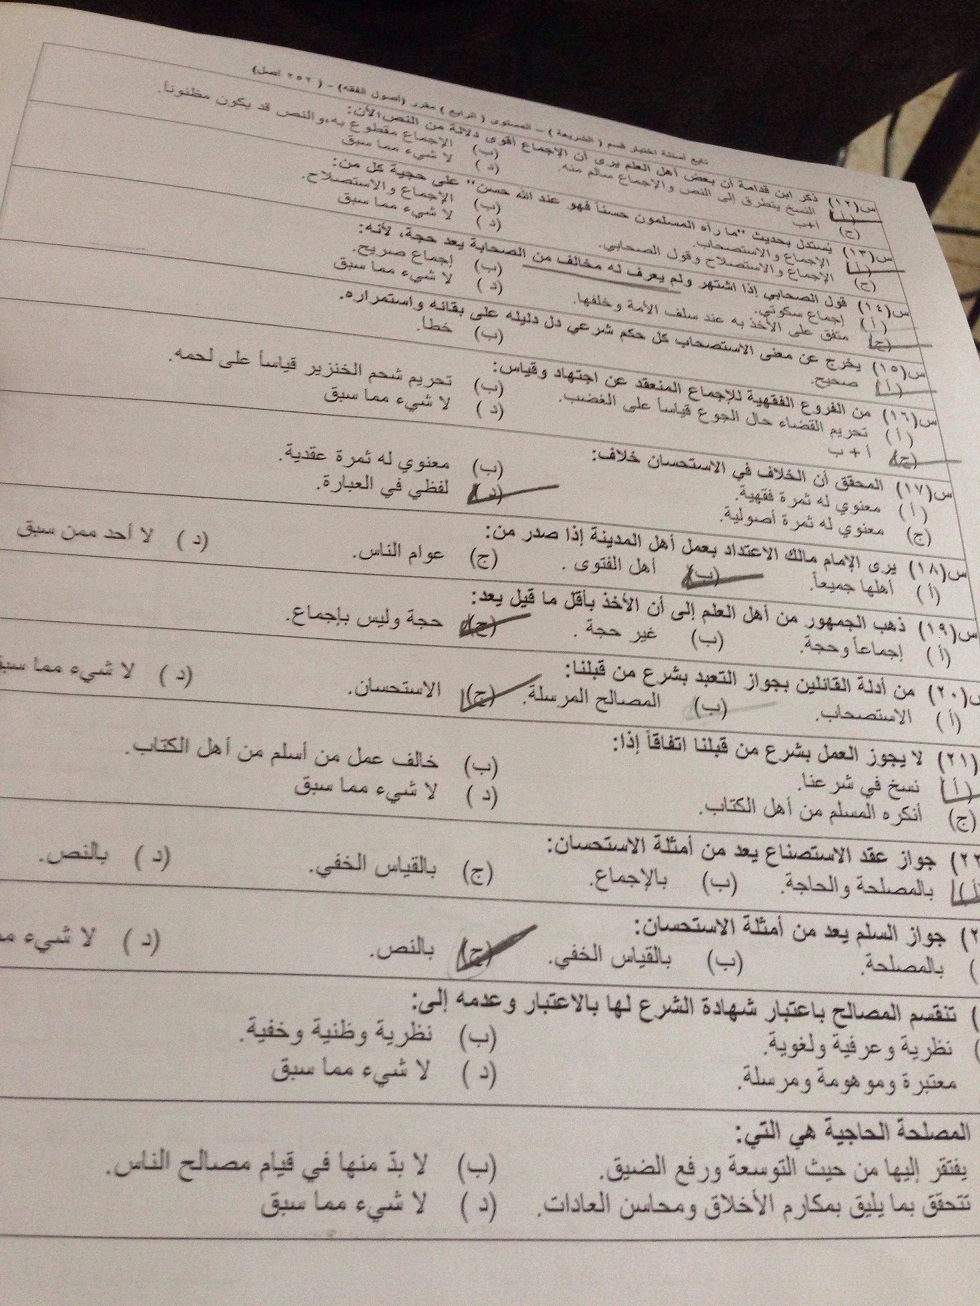 تابع أسئلة اختبار قسم ( الشريعة ) – المستوى ( الرابع ) مقرر (أصول الفقه) – ( ٢٥٢ أصل)
س(١٢) ذكر ابن قدامة أن بعض أهل العلم يرى أن الإجماع أقوى دلالة من النص؛لأن:
(أ) النسخ يتطرق إلى النص والإجماع سالم منه. (ب) الإجماع مقطوع به،والنص قد يكون مظنوناً.
(ج) أ+ب (د) لا شيء مما سبق
س(١٣) يُستدل بحديث "ما رآه المسلمون حسناً فهو عند الله حسن" على حجية كل من:
(أ) الإجماع والاستصحاب. (ب) الإجماع والاستصلاح.
(ج) الإجماع والاستصلاح وقول الصحابي. (د) لا شيء مما سبق
س(١٤) قول الصحابي إذا اشتهر ولم يعرف له مخالف من الصحابة يعد حجة، لأنه:
(أ) إجماع سكوتي. (ب) إجماع صريح.
(ج) متفق على الأخذ به عند سلف الأمة وخلفها. (د) لا شيء مما سبق
س(١٥) يخرج عن معنى الاستصحاب كل حكم شرعي دل دليله على بقائه واستمراره.
(أ) صحيح. (ب) خطأ.
س(١٦) من الفروع الفقهية للإجماع المنعقد عن اجتهاد وقياس:
(أ) تحريم القضاء حال الجوع قياساً على الغضب. (ب) تحريم شحم الخنزير قياساً على لحمه.
(ج) أ + ب (د) لا شيء مما سبق
س(١٧) المحقق أن الخلاف في الاستحسان خلاف:
(أ) معنوي له ثمرة فقهية. (ب) معنوي له ثمرة عقدية.
(ج) معنوي له ثمرة أصولية. (د) لفظي في العبارة.
س(١٨) يرى الإمام مالك الاعتداد بعمل أهل المدينة إذا صدر من:
(أ) أهلها جميعاً. (ب) أهل الفتوى . (ج) عوام الناس. (د) لا أحد ممن سبق
س(١٩) ذهب الجمهور من أهل العلم إلى أن الأخذ بأقل ما قيل يعد:
(أ) إجماعاً وحجة. (ب) غير حجة . (ج) حجة وليس بإجماع.
س(٢٠) من أدلة القائلين بجواز التعبد بشرع من قبلنا:
(أ) الاستصحاب. (ب) المصالح المرسلة. (ج) الاستحسان. (د) لا شيء مما سبق
(٢١) لا يجوز العمل بشرع من قبلنا اتفاقاً إذا:
(أ) نسخ في شرعنا. (ب) خالف عمل من أسلم من أهل الكتاب.
(ج) أنكره المسلم من أهل الكتاب. (د) لا شيء مما سبق
٢٢) جواز عقد الاستصناع يعد من أمثلة الاستحسان:
(أ) بالمصلحة والحاجة. (ب) بالإجماع. (ج) بالقياس الخفي. (د) بالنص.
) جواز السلم يعد من أمثلة الاستحسان:
) بالمصلحة. (ب) بالقياس الخفي. (ج) بالنص. (د) لا شيء
) تنقسم المصالح باعتبار شهادة الشرع لها بالاعتبار وعدمه إلى:
) نظرية وعرفية ولغوية. (ب) نظرية وظنية وخفية.
معتبرة وموهومة ومرسلة. (د) لا شيء مما سبق
المصلحة الحاجية هي التي:
يفتقر إليها من حيث التوسعة ورفع الضيق. (ب) لا بدّ منها في قيام مصالح الناس.
تتحقق بما يليق بمكارم الأخلاق ومحاسن العادات. (د) لا شيء مما سبق